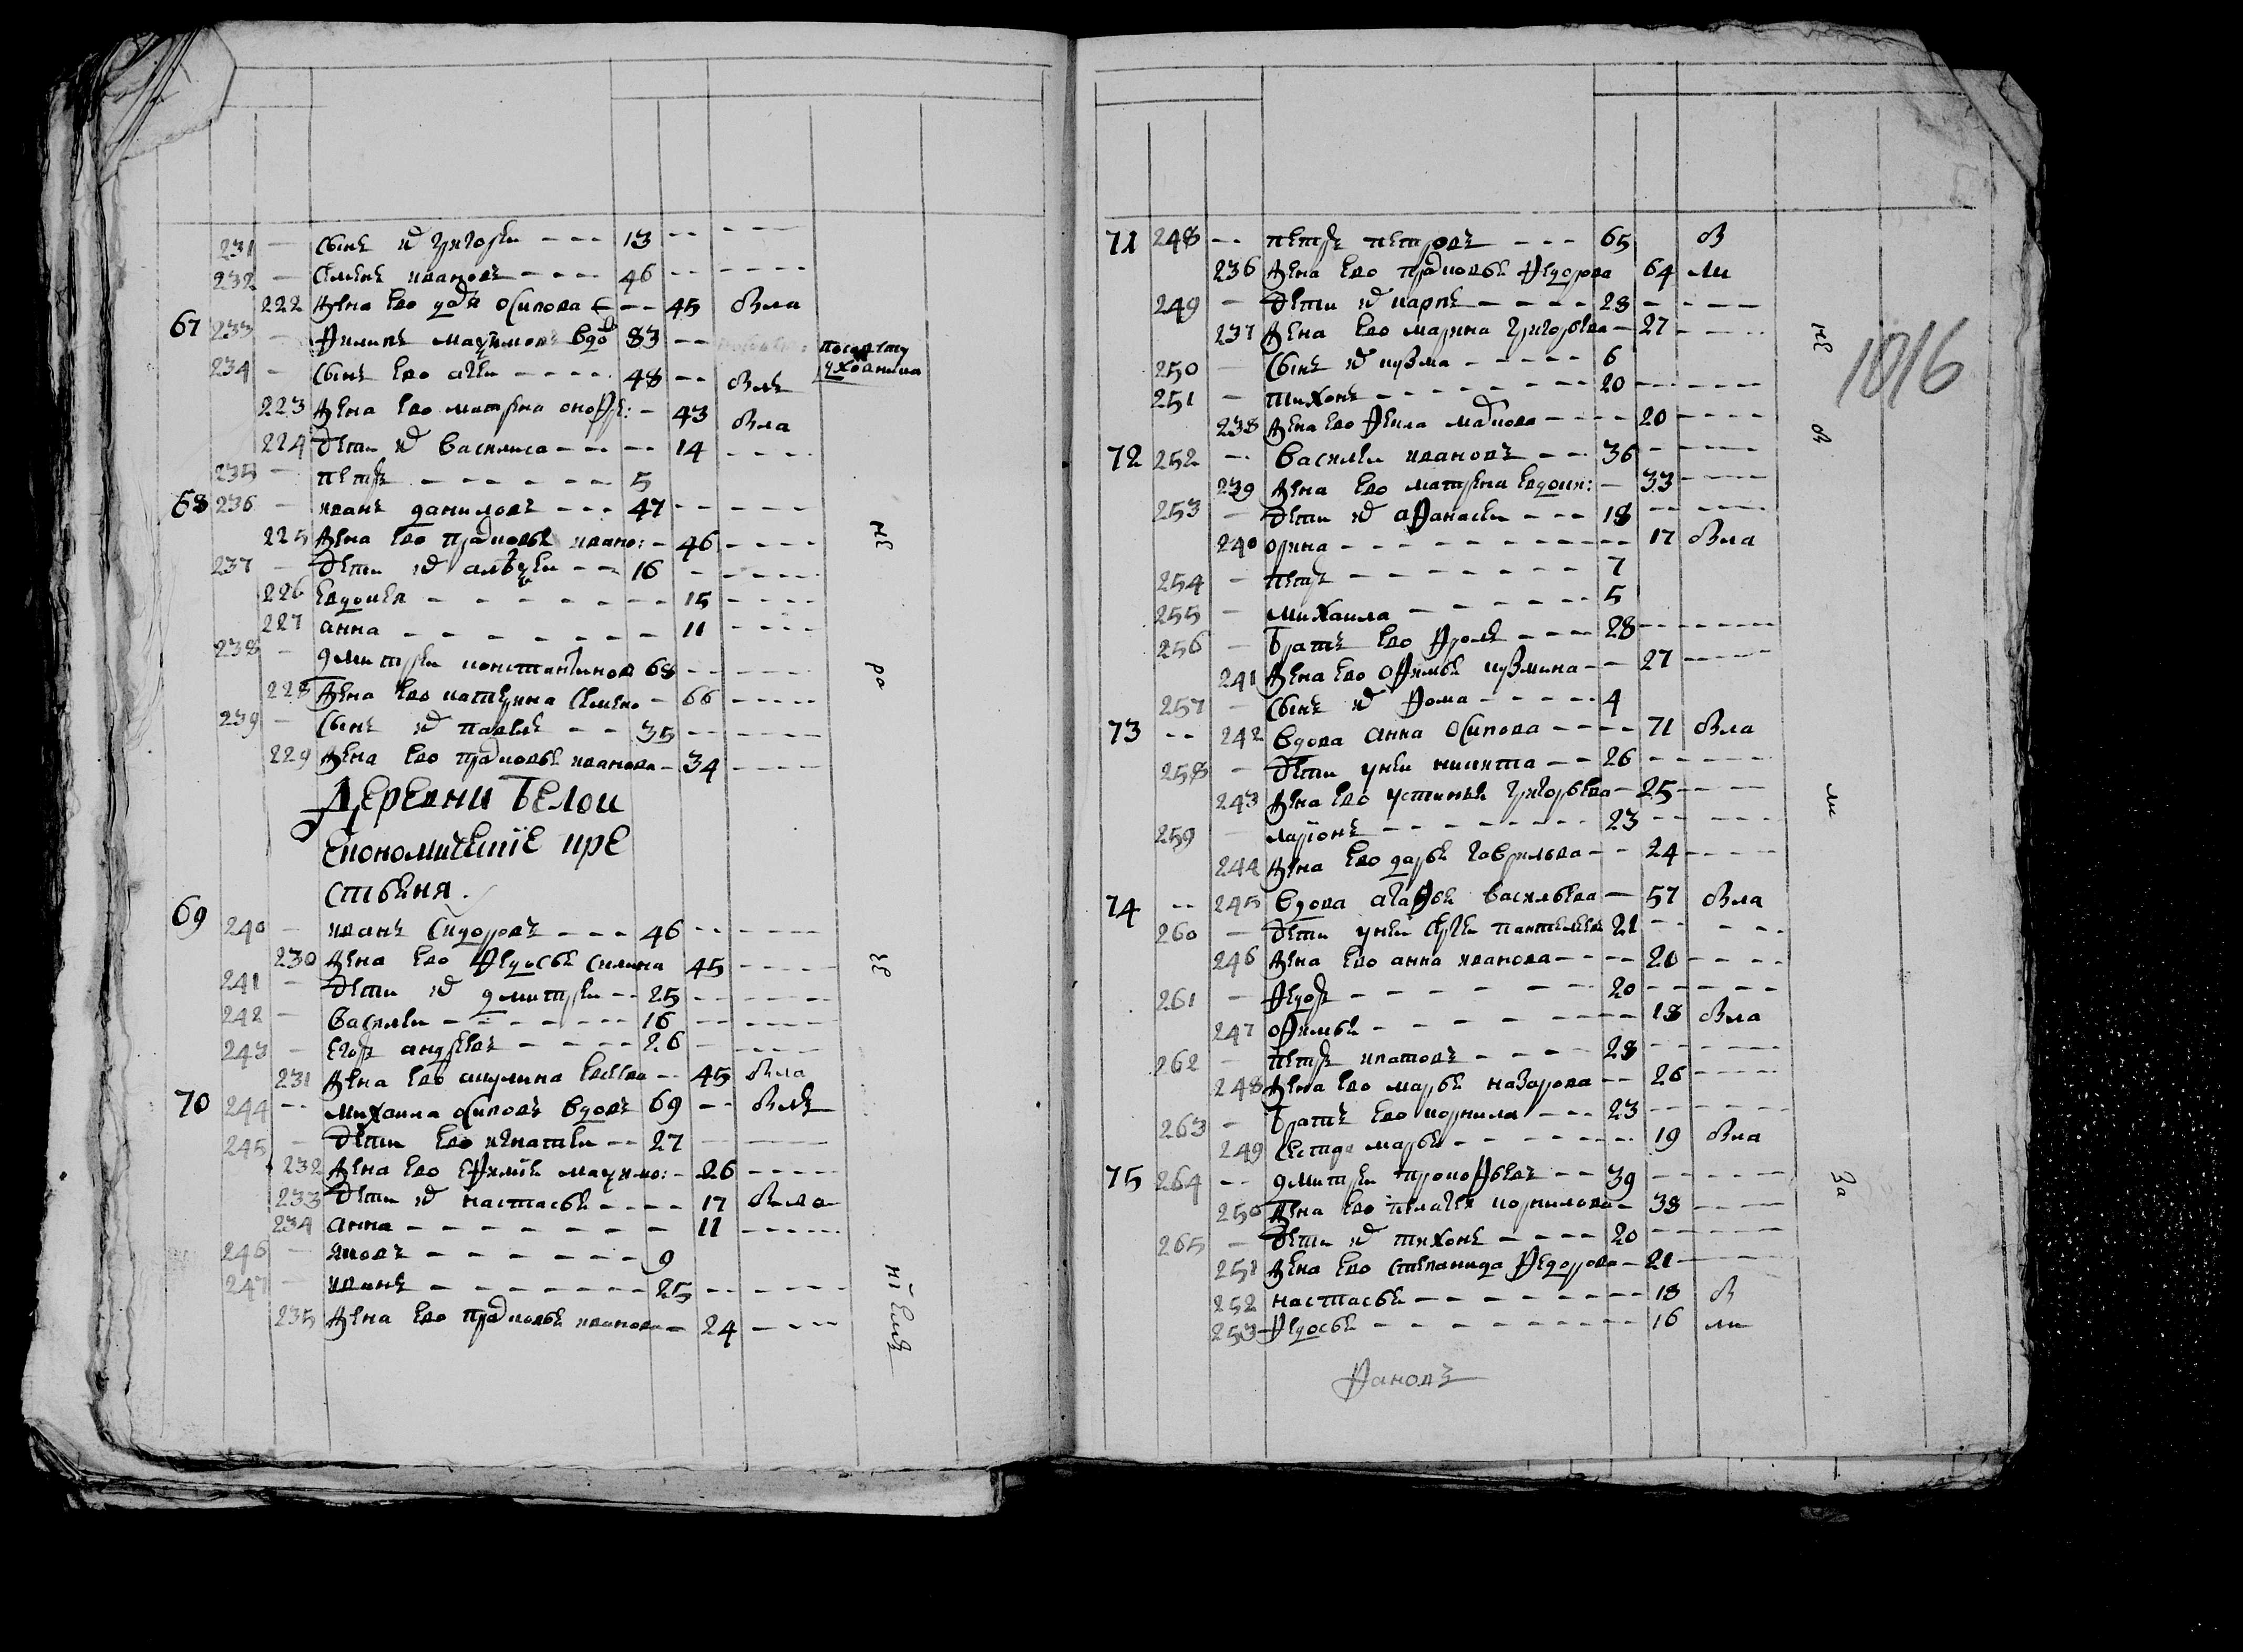 231 — сынъ ихъ григореи - - - 13 - - - - - -
232 — Семенъ ивановъ - - - - 46 - - - - - -
222 жена ево дарья Осипова - - - 45 была
67 233 — филипъ маѯимовъ вдовъ 83 - -
234 — сынъ ево - - - - 48 - - былъ
223 жена ево матрена онофре: - 43 была
224 дети ихъ василиса - - - - - 14 - - - -
235 — петръ - - - - - - - 5
68 236 — иванъ даниловъ - - - 47 - - - - - -
225 жена ево прасковья ивано: - 46 - - - -
237 — дети ихъ алеѯеи - - - 16 - - - - -
226 евдокея - - - - - - - - 15 - - - -
227 анна - - - - - - - 11 - - - -
238 — дмитреи константинов 68 - - - - - -
228 жена ево катерина Семено - 66 - - - -
239 — сынъ ихъ павелъ - - - 35 - - - - - -
229 жена ево прасковья иванова - 34 - - - -
Деревни Белои
економические кре
стьяня.
69 240 — иванъ Сидоровъ - - - 46 - - - - - -
230 жена ево федосья силина 45 - - - -
241 — дети ихъ дмитреи - - 25 - - - - - -
242 — василеи - - - - - - - 16 - - - - - -
243 — егоръ андреевъ - - - - 26 - - - - -
231 жена ево акулина - - 45 была
70 244 - - михаила осиповъ вдовъ 69 - - былъ
245 — дети ево игнатеи - - 27 - - - -
232 жена ево ефимия маѯимо: - 26 - - - -
233 дети ихъ настасья - - - - 17 была
234 анна - - - - - - - - 11 - - - - -
246 — яковъ - - - - - - - 9
247 — иванъ - - - - - - - - 25 - - - - - -
235 жена ево прасковья иванова - 24 - - - -
не
ра
зе
71 248 - - петръ петровъ - - - 65 б
236 жена ево прасковья федорова 64 ли
249 — дети ихъ карпъ - - - - - 28 - - - -
237 жена ево марина григорьева - 27 - - - -
250 — сынъ ихъ кузма - - - - - 6
251 — тихонъ - - - - - - - 20 - - - - - -
238 жена ево - - - - 20 - - - -
72 252 - - василеи ивановъ - - - 36 - - - - -
239 жена ево матрена евдоки: - 33 - - - -
253 — дети ихъ афанасеи - - - 18 - - - - - -
240 орина - - - - - - - - - - 17 была
254 — петръ - - - - - - - - 7
255 — михаила - - - - - - 5
256 — братъ ево фролъ - - - - 28 - - - - - -
241 жена ево офимья кузмина - - 27 - - - -
257 — сынъ ихъ фома - - - - - 4
73 - - 242 вдова анна Осипова - - - - 71 была
258 — дети унеи никита - - 26 - - - - - -
243 жена ево устинья григорьева - 25 - - - -
259 — ларионъ - - - - - - - - 23 - - - - -
244 жена ево дарья гаврильева - - 24 - - - -
74 - - 245 вдова агафья васильева - 57 была
260 — дети унеи сергеи пантелеевъ 21 - - - - -
246 жена ево анна иванова - - - - 20 - - - -
261 — федоръ - - - - - - - 20 - - - - - -
247 офимья - - - - - - - - 18 была
262 — петръ - - - - 28 - - - - - -
248 жена ево марья назарова - - 26 - - - -
263 — братъ ево корнила - - - 23 - - - - - -
249 сестра марья - - - - - - - 19 была
75 264 - - дмитреи прокофьевъ - - 39 - - - - - -
250 жена ево пелагея корнилова - 38 - - - -
265 — дети ихъ тихонъ - - - - 20 - - - - -
251 жена ево степанида федорова - 21 - - - -
252 настасья - - - - - - - - - 18 б
253 федосья - - - - - - - - - - 16 ли
не
б
ли
за
1016